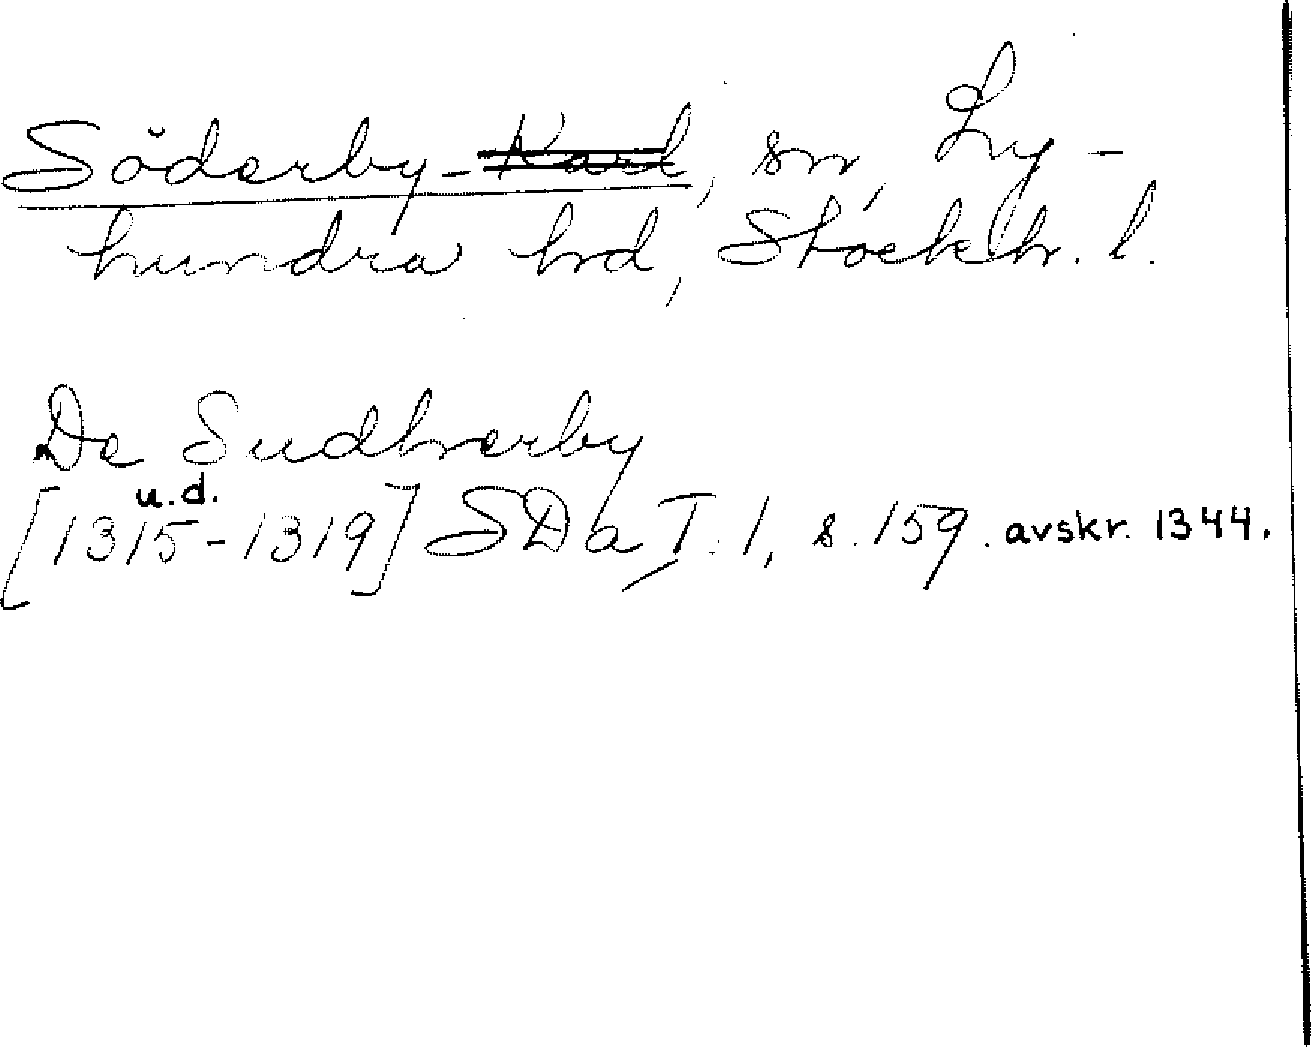 Söderby-Karl, sn, Ly-
hundra hd, Stockh. l.
De Sudherby
u.d.
[1315-1319] SDa T. 1, s. 159. avskr. 1344.